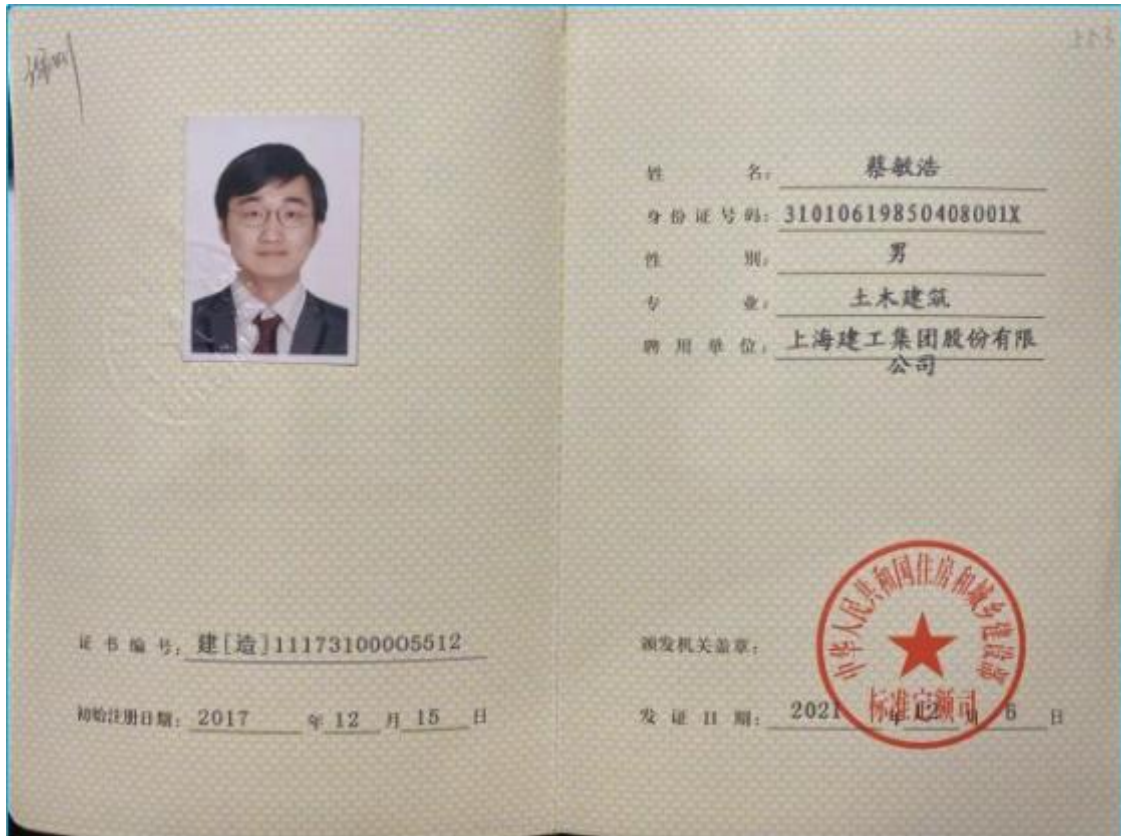 证书编号：建[造]11173100005512
初始注册日期：2017年12月15日
姓名：蔡敏浩
身份证号码：31010619850408001X
性别：男
专业：土木建筑
聘用单位：上海建工集团股份有限
公司
颁发机关盖章：
中华人民共和国住房和城乡建设部
标准定额司
发证日期：2021年12月6日